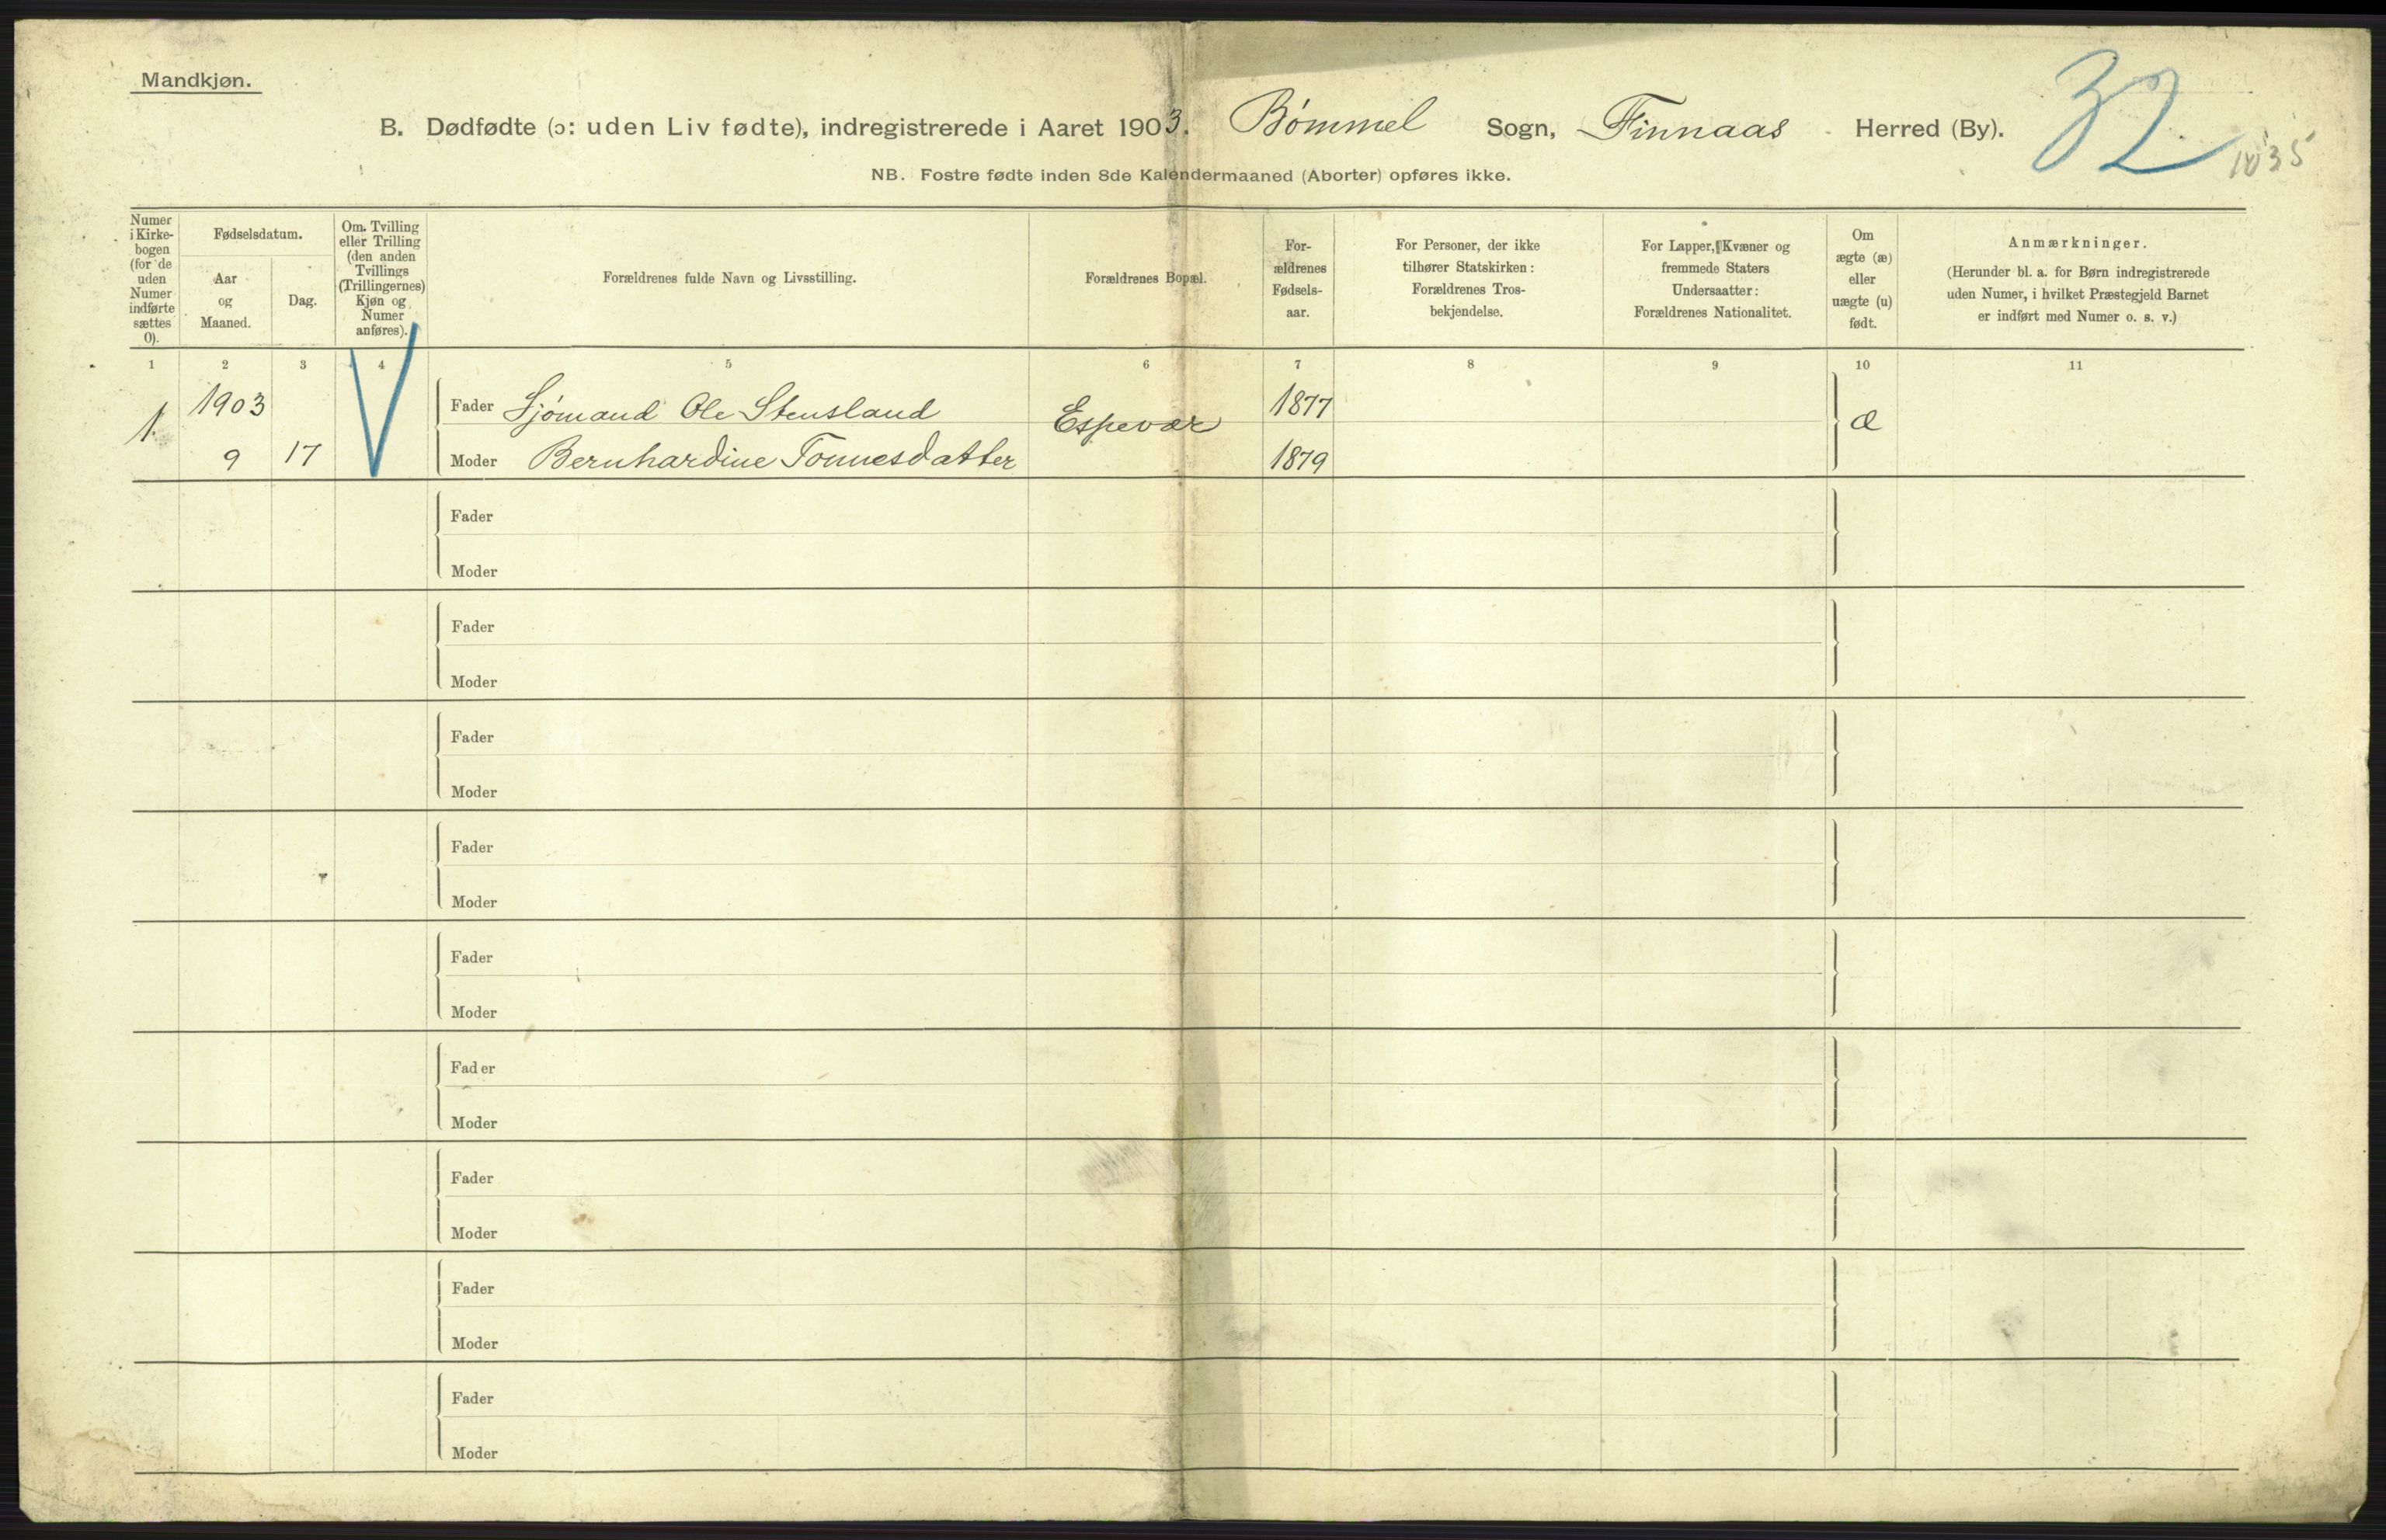 Mandkjøn.
B. Dødfødte (ɔ: uden Liv fødte), indregistrerede i Aaret 1903. Bømmel Sogn, Finnaas Herred (By).
32
1035
NB. Fostre fødte inden 8de Kalendermaaned (Aborter) opføres ikke.
Numer
i Kirke-
bogen
(for de
uden
Numer
indførte
sættes
0).
Fødselsdatum.
Aar
og
Maaned.
Dag.
Om Tvilling
eller Trilling
(den anden
Tvillings
(Trillingernes)
Kjøn og
Numer
anføres).
Forældrenes fulde Navn og Livsstilling.
Forældrenes Bopæl.
For-
ældrenes
Fødsels-
aar.
For Personer, der ikke
tilhører Statskirken:
Forældrenes Tros-
bekjendelse.
For Lapper, Kvæner og
fremmede Staters
Undersaatter:
Forældrenes Nationalitet.
Om
ægte (æ)
eller
uægte (u)
født.
Anmærkninger.
(Herunder bl. a. for Børn indregistrerede
uden Numer, i hvilket Præstegjeld Barnet
er indført med Numer o. s. v.)
1 2 3 4 5 6 7 8 9 10 11
1. 1903 Fader Sjømand Ole Stensland Espevær 1877 æ
9 17 Moder Bernhardine Tonnesdatter 1879
Fader
Moder
Fader
Moder
Fader
Moder
Fader
Moder
Fader
Moder
Fader
Moder
Fader
Moder
Fader
Moder
Fader
Moder